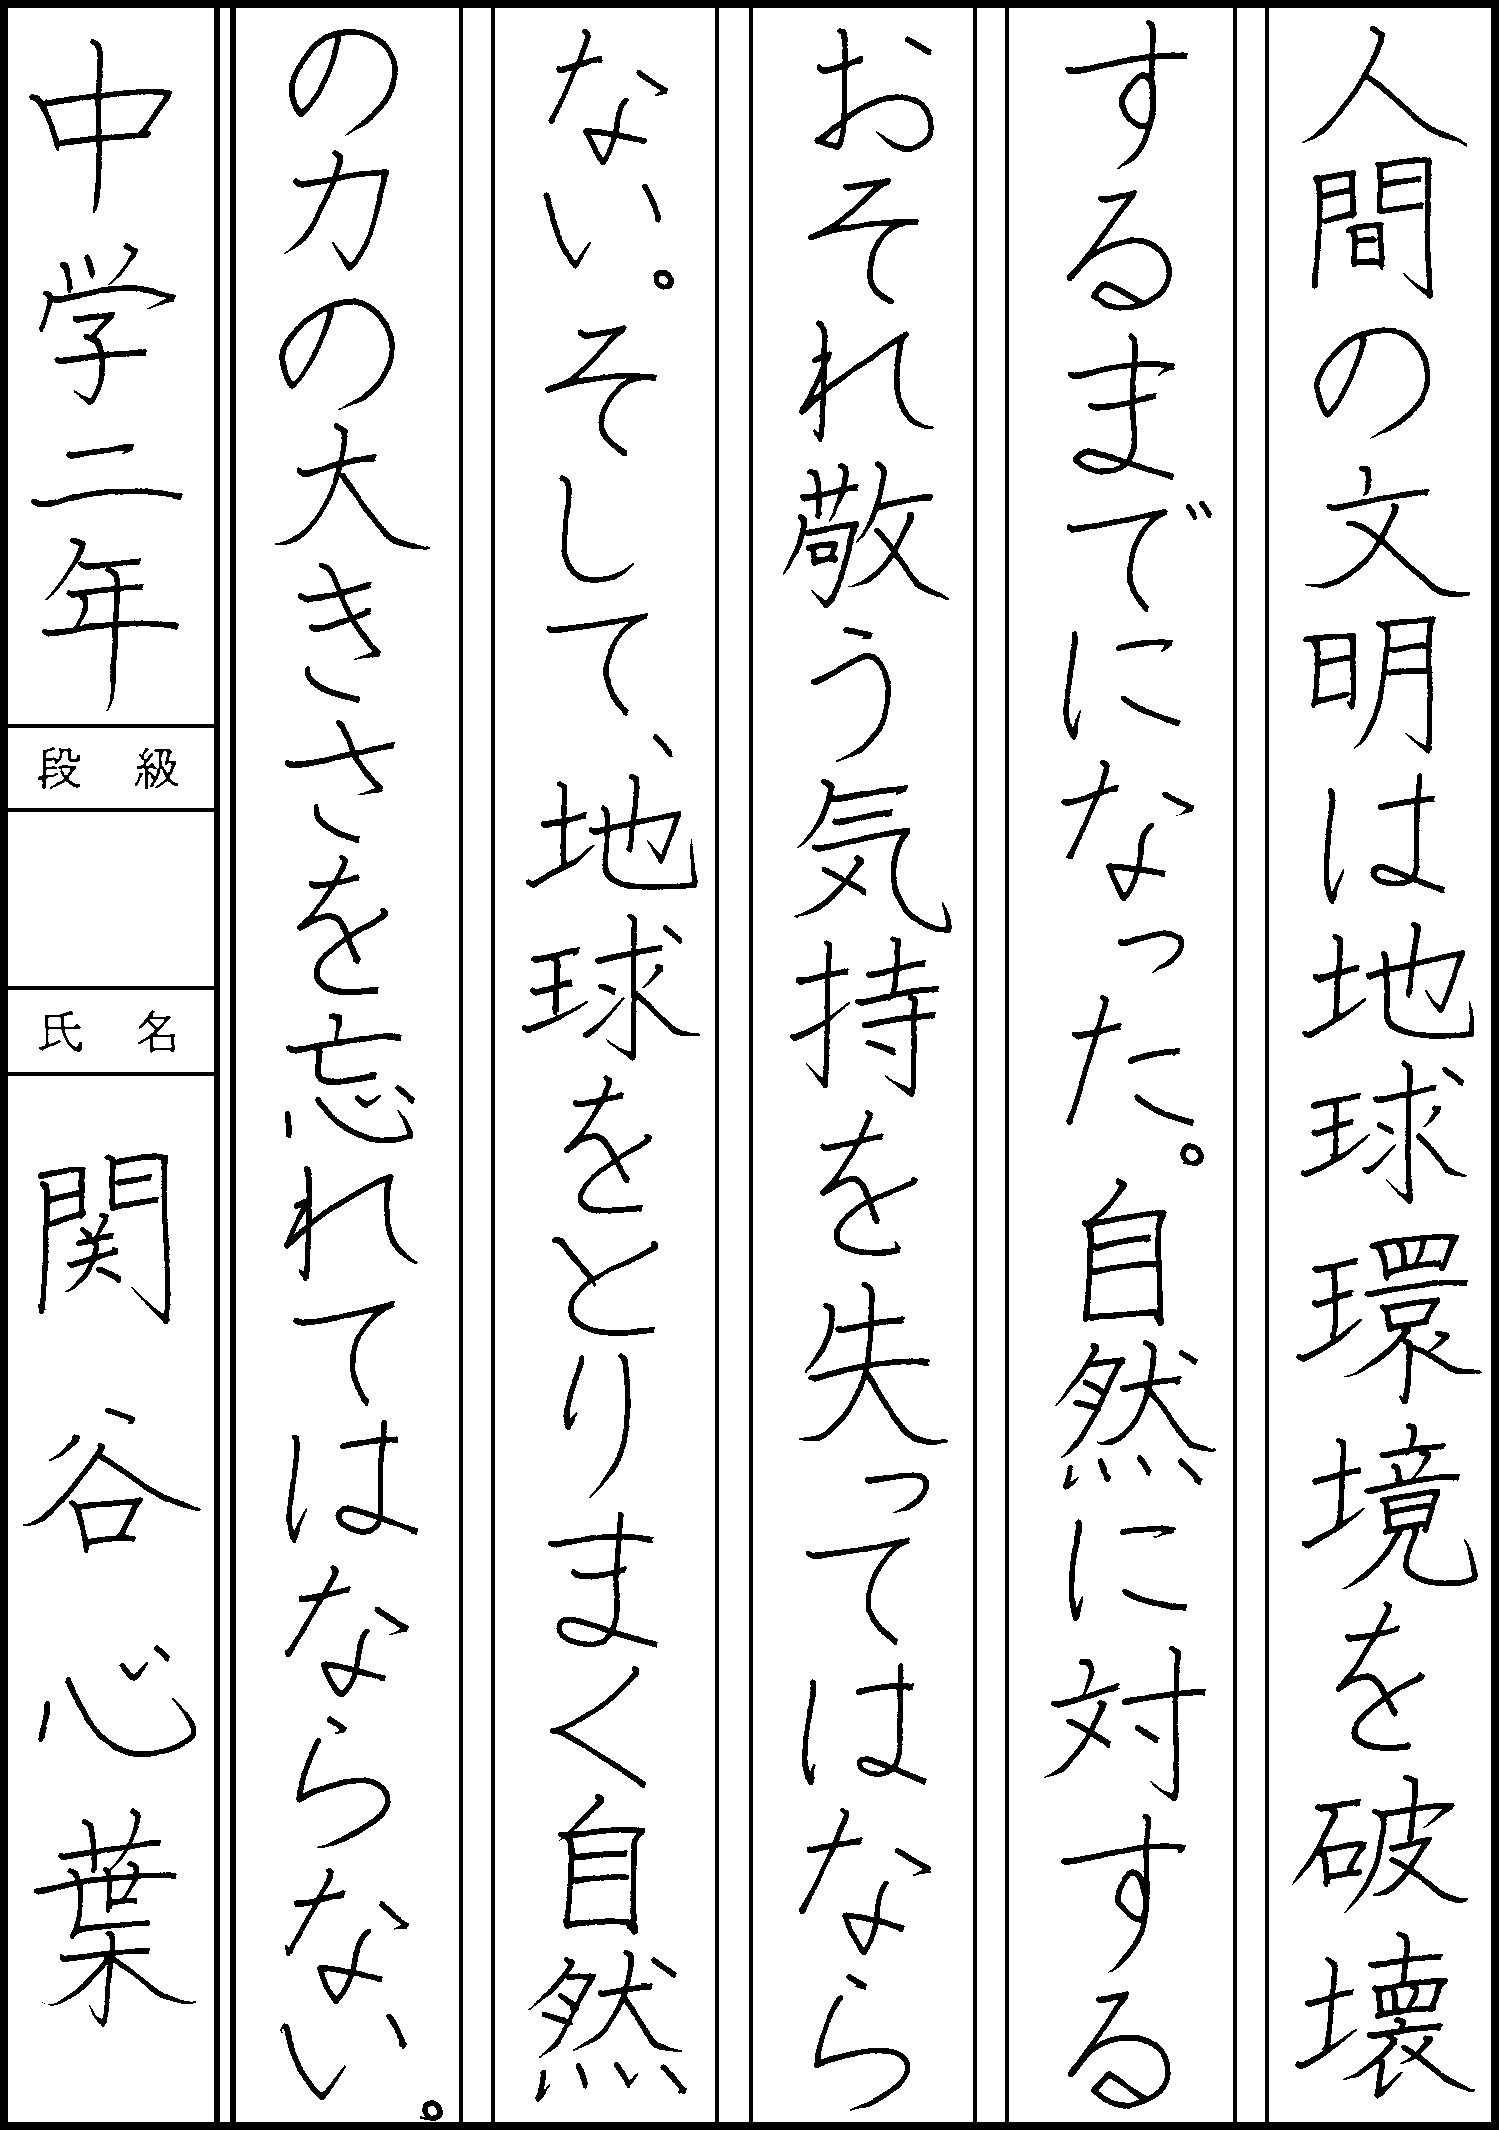 人間の文明は地球環境を破壊
するまでになった。自然に対する
おそれ敬う気持を失ってはなら
ない。そして、地球をとりまく自然
の力の大きさを忘れてはならない。
中学二年
段級
氏名
関谷心葉